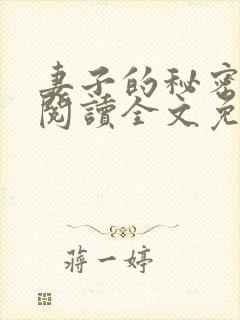 妻子的秘密
閱讀全文免
蔣一婷